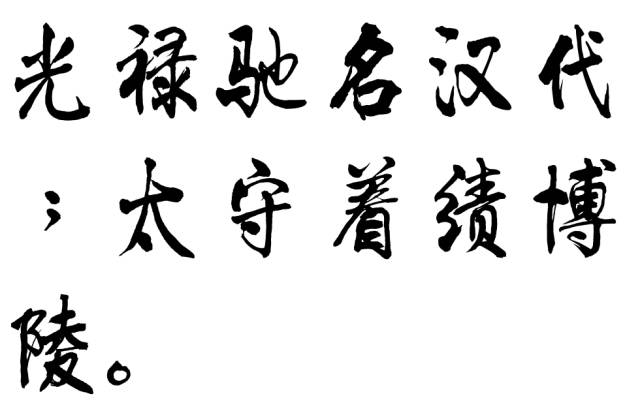 光禄驰名汉代
；太守着绩博
陵。